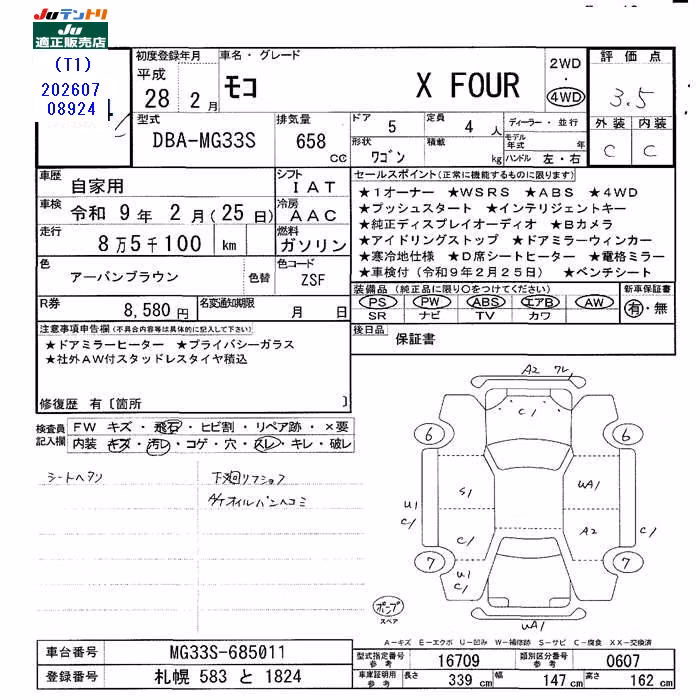 Juテントリ
Ju
適正販売店
(T1)
202607
08924
初度登録年月
平成
28 2 月
車名・グレード
モコ X FOUR
2WD
・
4WD
評価点
3.5
外装 内装
C C
型式
DBA-MG33S
排気量
658 cc
ドア 5
定員 4 人
形状 ワゴン
積載 kg
ディーラー・並行
モデル年式 年
ハンドル 左・右
車歴 自家用
シフト IAT
車検 令和 9 年 2 月(25 日)
冷房 AAC
走行 8 万 5 千 100 km
燃料 ガソリン
色 アーバンブラウン 色替
色コード ZSF
R券 8,580 円
名変通知期限 月 日
セールスポイント(正常に機能するものに限ります)
★1オーナー ★WSRS ★ABS ★4WD
★プッシュスタート ★インテリジェントキー
★純正ディスプレイオーディオ ★Bカメラ
★アイドリングストップ ★ドアミラーウィンカー
★寒冷地仕様 ★D席シートヒーター ★電格ミラー
★車検付(令和9年2月25日) ★ベンチシート
装備品(純正品に限り○をつけてください)
PS PW ABS エアB AW
SR ナビ TV カワ
新車保証書
有・無
後日品 保証書
注意事項申告欄(不具合内容等は具体的に記入して下さい)
★ドアミラーヒーター ★プライバシーガラス
★社外AW付スタッドレスタイヤ積込
修復歴 有〔箇所 〕
検査員記入欄
FW キズ・飛石・ヒビ割・リペア跡・×要
内装 キズ・汚レ・コゲ・穴・スレ・キレ・破レ
シートヘタリ
下廻リフショク
A/Tオイルパンヘコミ
A2 ワレ
C/
6 6
S1 UA1
U1
C/
C/ A2 C/
7 7
U1
C/
UA1
ポンプ
スペア
A-キズ E-エクボ U-凹み W-補修跡 S-サビ C-腐食 XX-交換済
車台番号 MG33S-685011
登録番号 札幌 583 と 1824
型式指定番号 参考 16709
類別区分番号 参考 0607
車庫証明用 参考 長さ 339 cm 幅 147 cm 高さ 162 cm